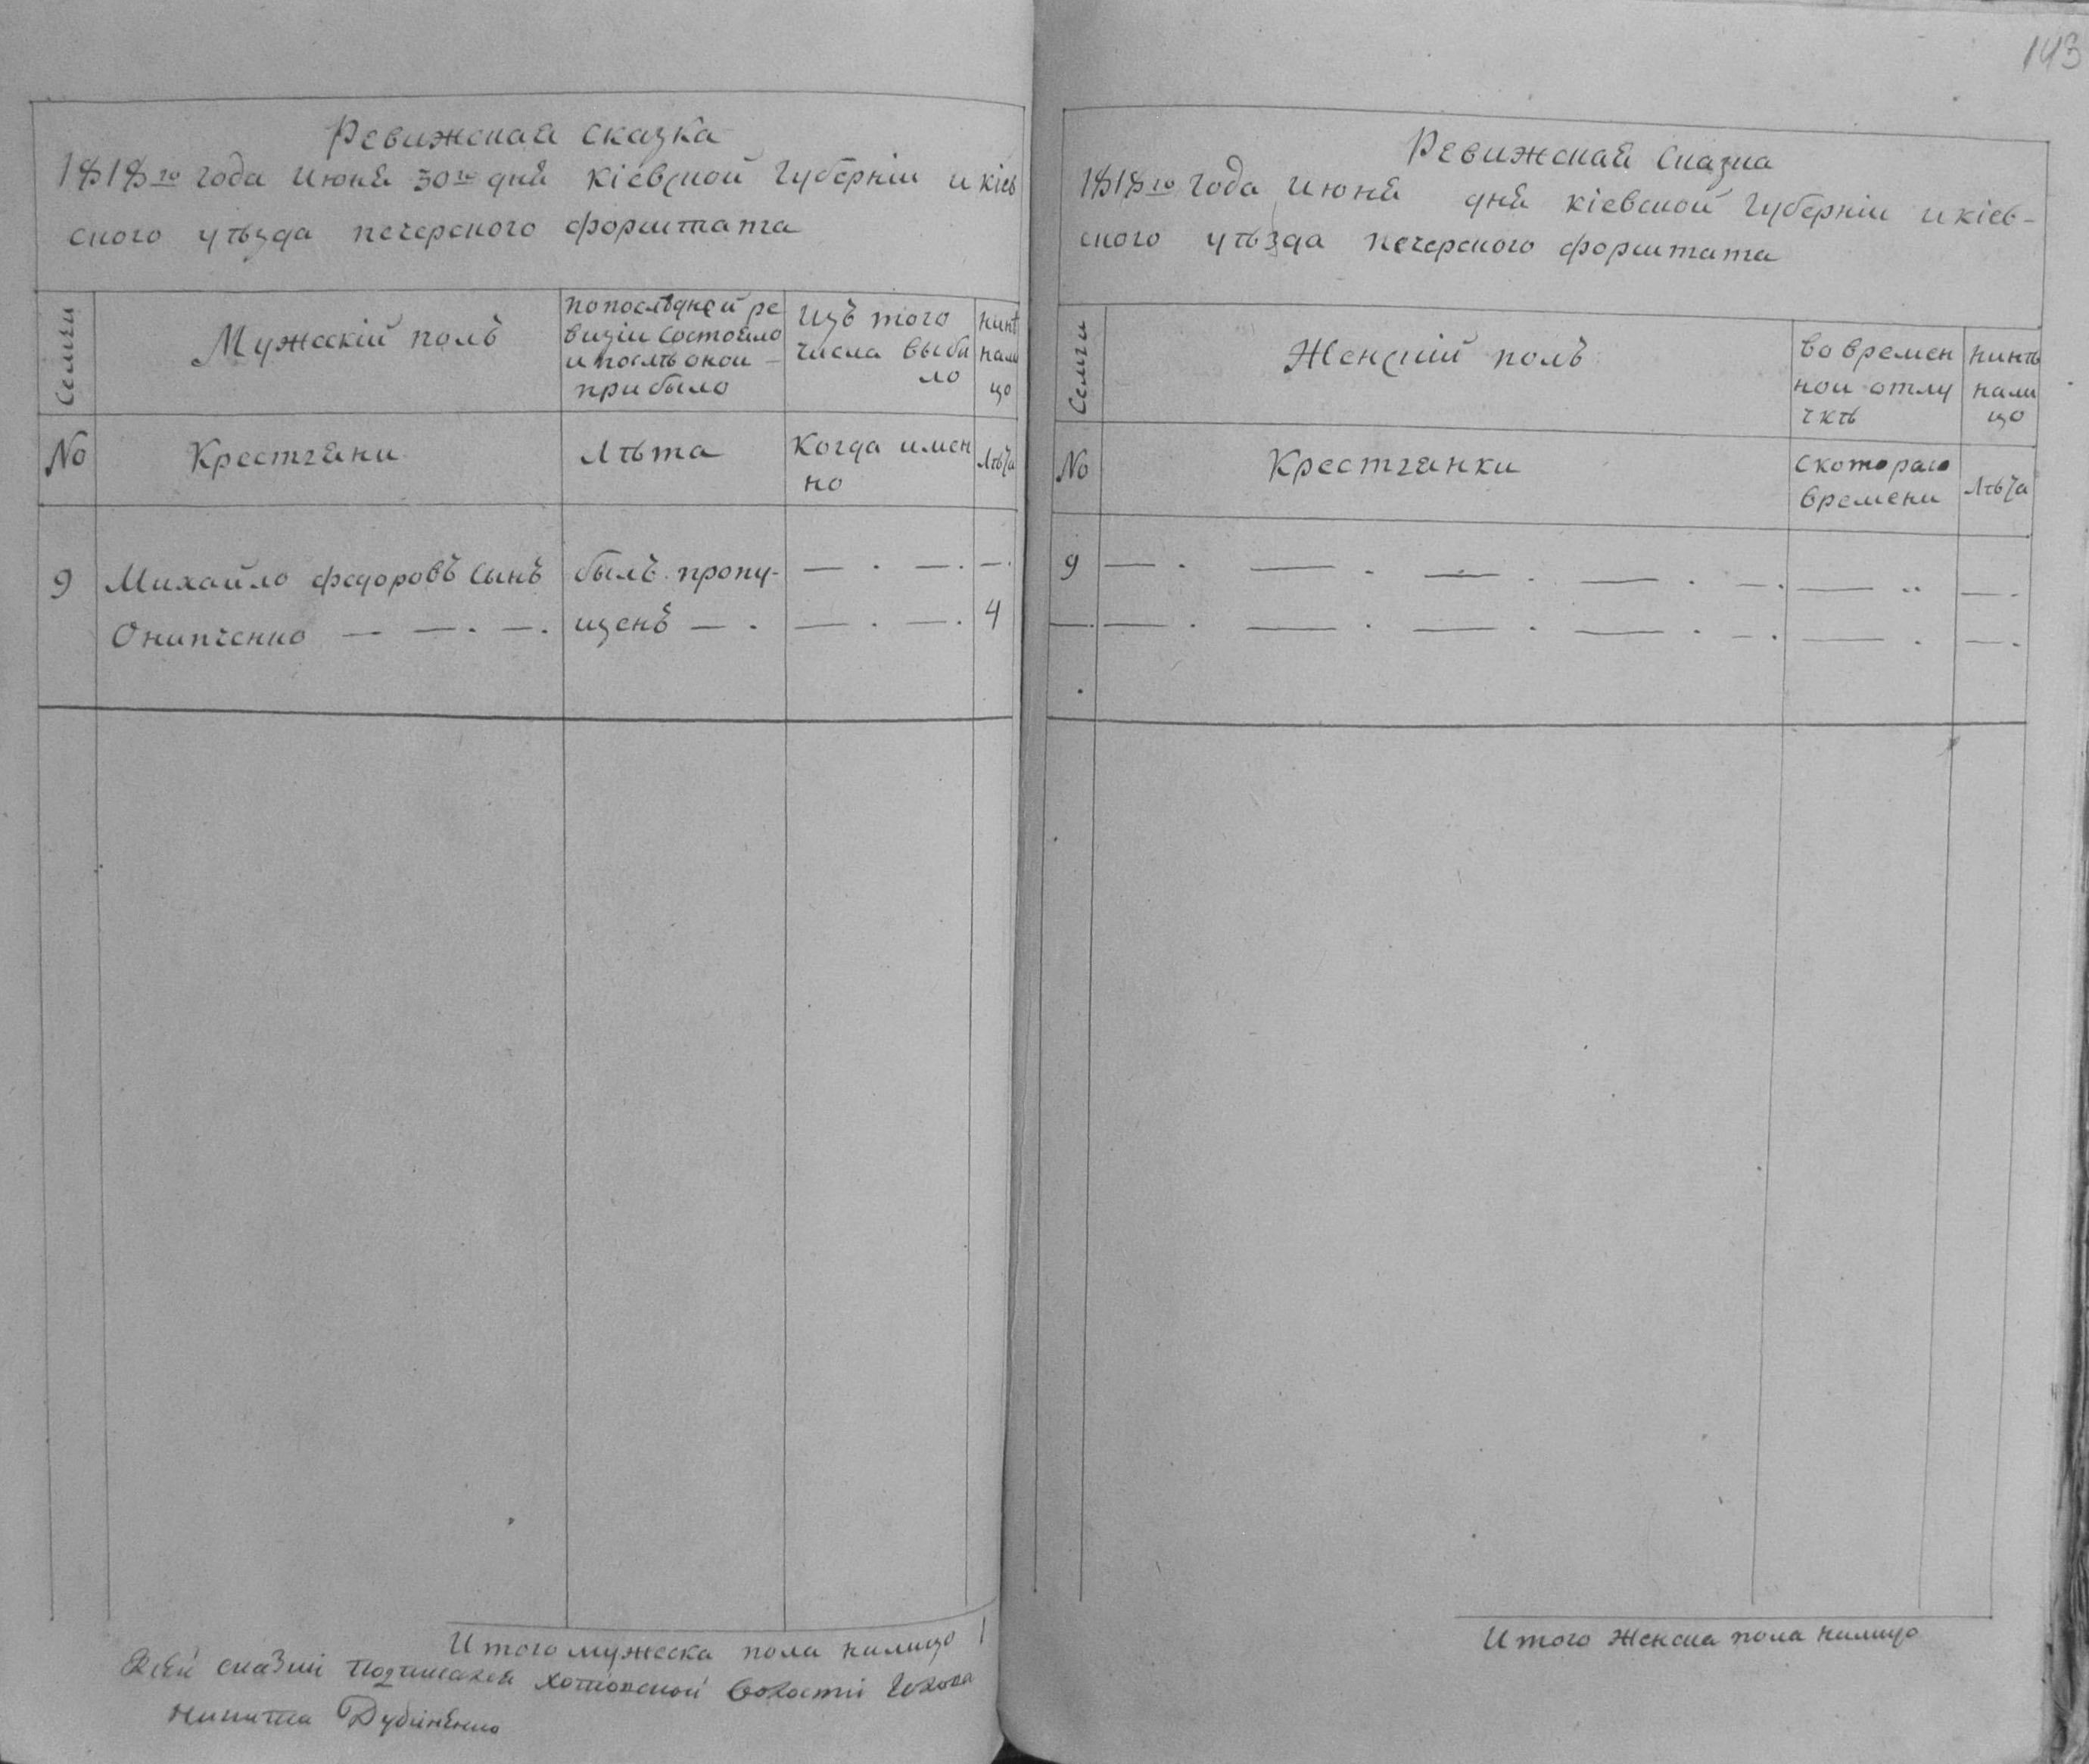 Ревижская сказка
1818го года июня 30го дня кіевской губерніи и кіев
ского уѣзда печерского форштата
Семьи
Мужескій полъ
по последней ре
визіи состояло
и послѣ оной –
прибыло
Изъ того
числа выбы
ло
нинѣ
нали
цо
No
Крестьяни
лѣта
Когда имен
но
лѣта
9
Михайло федоровъ сынъ
былъ пропу-
— . — . — .
Онипченко — — . — .
щенъ — .
— . — .
4
Итого мужеска пола налицо 1
сказки хотовской волости голова
никита Дубиненко
143
Ревижская Сказка
1818го года июня дня кіевской губерніи и кіев-
ского уѣзда печерского форштата
Семьи
Женскій полъ
во времен
ной отлу
чкѣ
нинѣ
нали
цо
No
Крестьянки
с которого
времени
лѣта
9
— . — . — . — . — . — .. — .
— . — . — . — . — . — . — . — .
Итого женска пола налицо